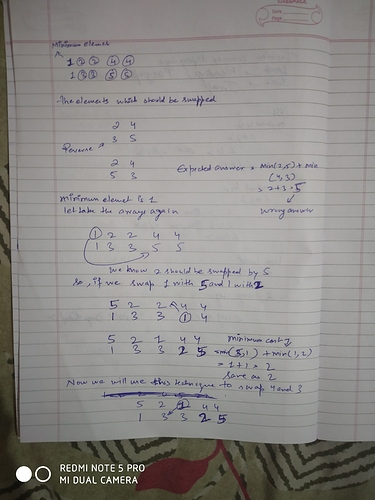 Minimum elemet
1 2 2 4 4
1 3 3 5 5
The elements which should be swapped
2 4
3 5
Reverse
2 4
5 3
Expected answer = min(2,5) + min
(4,3)
= 2+3 = 5
wrong answer
minimum elemet is 1
let take the arrays again
1 2 2 4 4
1 3 3 5 5
we know 2 should be swapped by 5
so, if we swap 1 with 5 and 1 with 2
5 2 2 4 4
1 3 3 1 4
5 2 1 4 4
1 3 3 2 5
minimum cost of
min(5,1) + min(1,2)
= 1+1 = 2
save as 2
Now we will use this technique to swap 4 and 3
5 2 1 4 4
1 3 3 2 5
REDMI NOTE 5 PRO
MI DUAL CAMERA